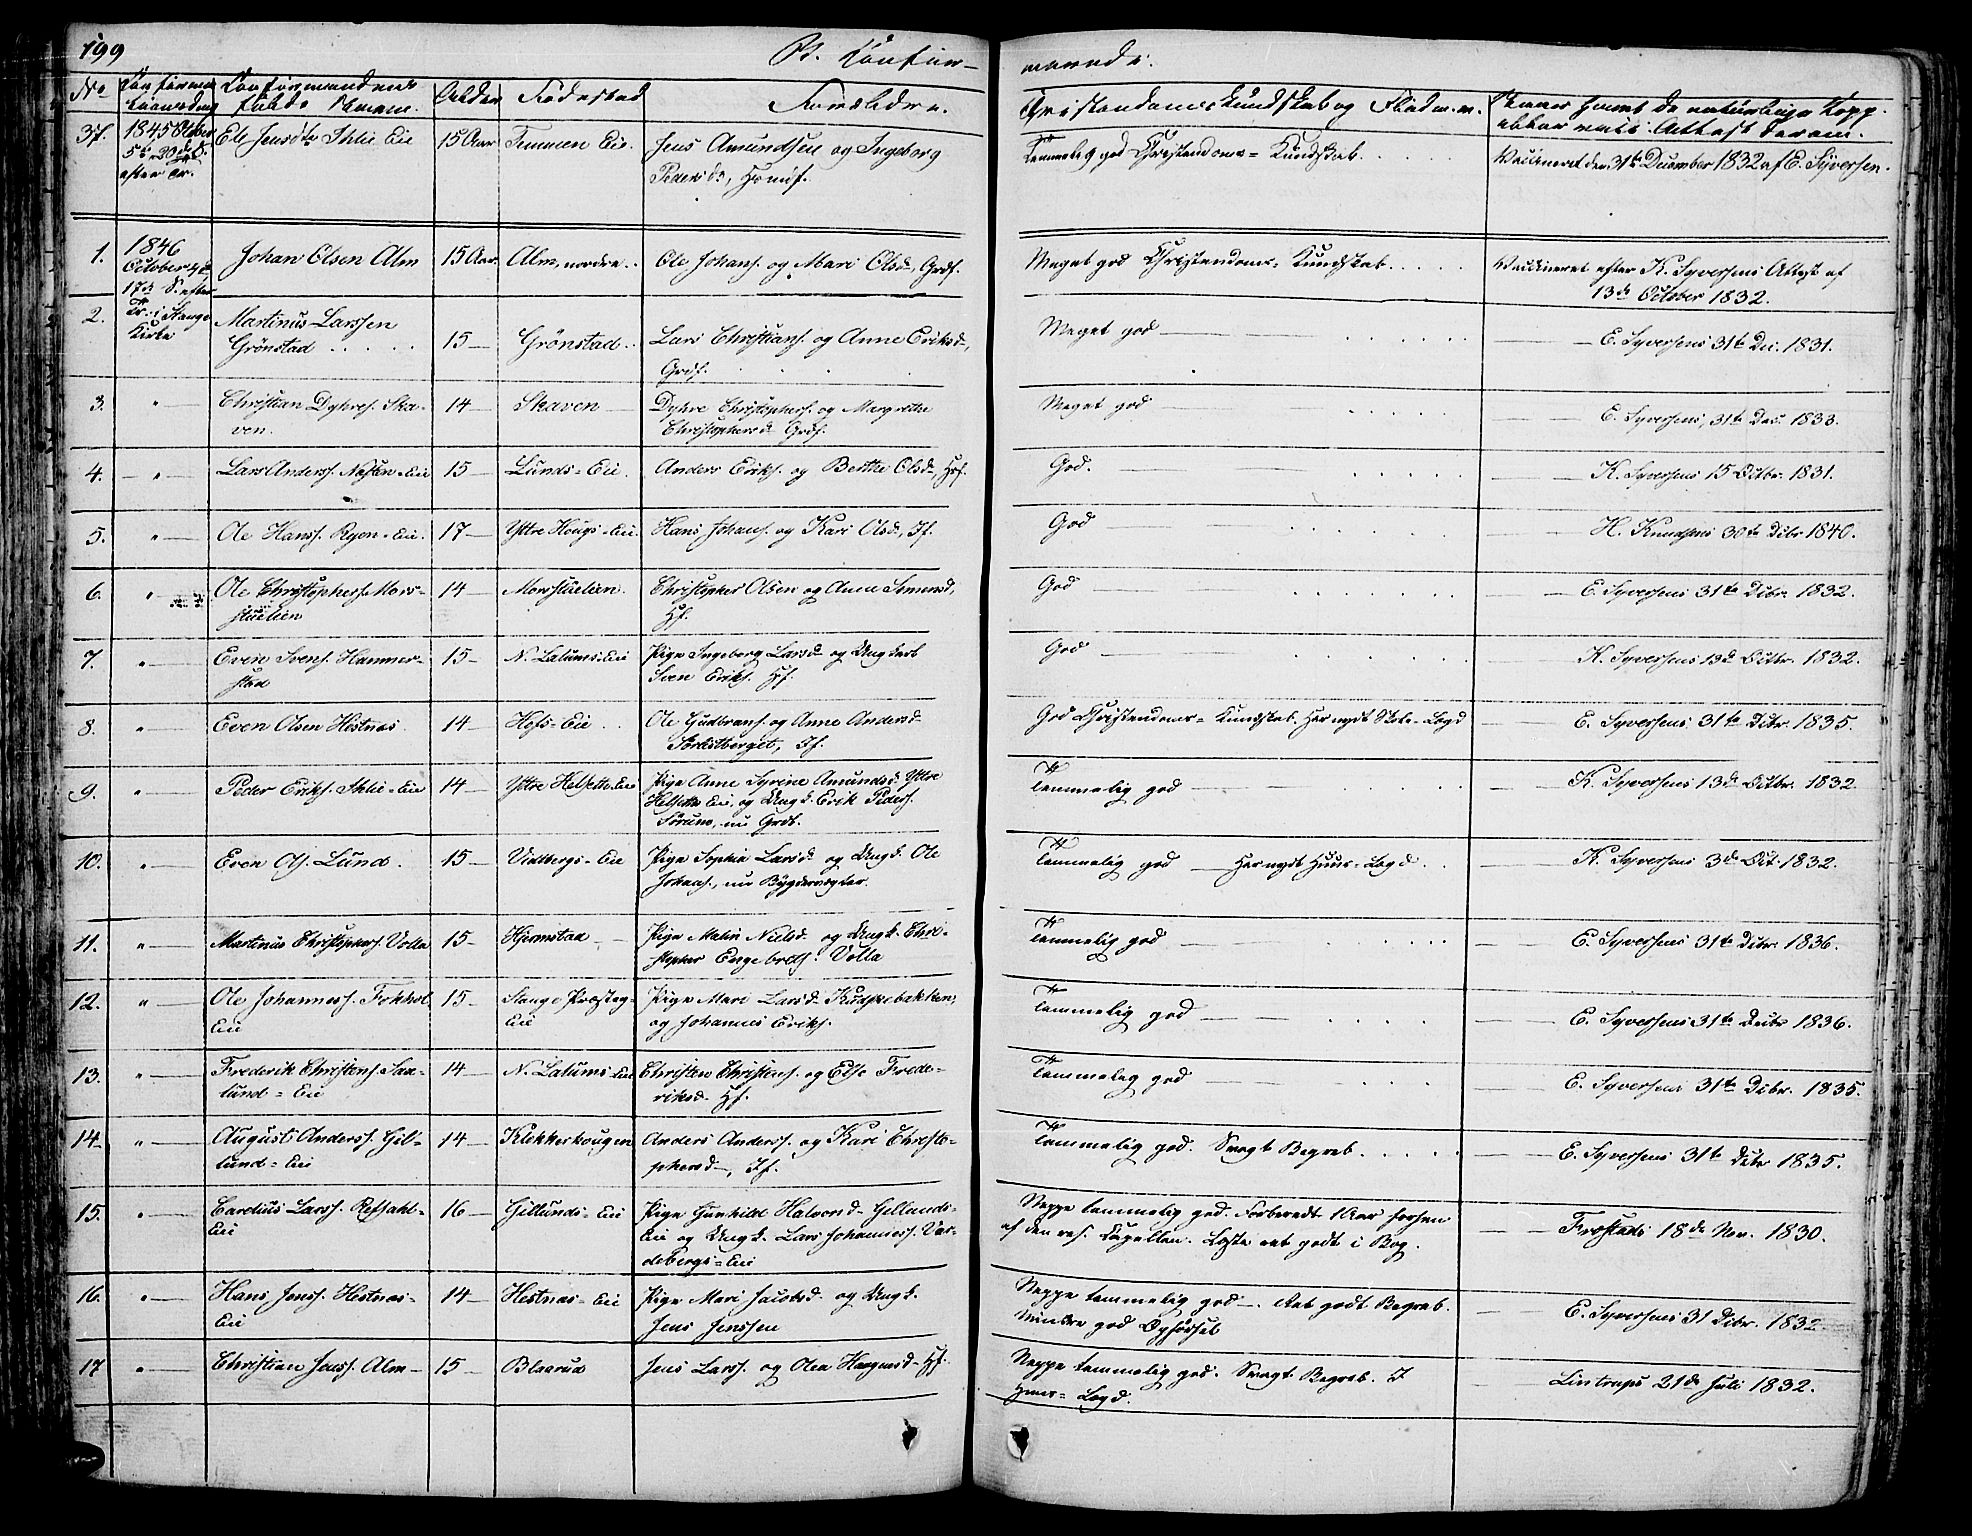 199
B. Confir-
merede.
No
Confirma-
tionsdag
Confirmandens
fulde Navn.
Alder
Fødested
Forældre.
Christendomskundskab og Flid m.v.
Naar havt de naturlige Kopp.
eller vacc. Attest derom.
37. 1845 October 15 Aar Jens Amundsen og Ingeborg
Pedersd., Huusf.
Temmelig god Christendoms-Kundskab.
Vaccineret den 31te December 1832 af E. Syversen.
1. 1846 October 4de 17de S. efter Tr. i Stange Kirke Johan Olsen Alm 15 Aar. Alm, nordre. Ole Johans. og Mari Olsd., Grdf.
Meget god Christendoms-Kundskab.
Vaccineret efter K. Syversens Attest af
13de October 1832.
2. Martinus Larssen
Grönstad 15 Grönstad Lars Christians. og Anne Eriksd.,
Grdf.
Meget god
E. Syversens 31te Dec. 1831.
3. " Christian Dyhres. Ska-
ven. 14 Skaven Dyhre Christophers. og Margrethe
Christophersd. Grdf.
Meget god
E. Syversens, 31te Dec. 1833.
4. " Lars Anderss. Næsten-Eie 15 Lunds-Eie Anders Eriks. og Berthe Olsd., Hf.
God.
K. Syversens 15 Octbr. 1831.
5. " Ole Hanss. Ryen-Eie. 17 Yttre Hougs-Eie Hans Johans. og Kari Olsd., If.
God
H. Knudsens 30te Dcbr 1840.
6. " Ole Christophers. Mors-
stuelien 14 Morsstuelien. Christopher Olsen og Anne Simensd.,
Hf.
God
E. Syversens 31te Dcbr. 1832.
7. " Even Svens. Hammer-
stad 15 N. Lalums-Eie Pige Ingeborg Larsd. og Ungkarl
Sven Eriks. Hf.
God
K. Syversens 13de Octbr. 1832.
8. " Even Olsen Hestnæs 14 Hofs-Eie Ole Gudbrans. og Anne Andersd.
Sörlistberget, If.
God Christendoms-Kundskab. Har nydt Skole-Lagd
E. Syversens 31te Dcbr. 1835.
9. " Peder Eriks. Ihlie-Eie 14 Yttre Helseth-Eie Pige Anne Syrine Amundsd. Yttre
Helseth Eie, og Ungk. Erik Peders.
Sörum, nu Grdb.
Temmelig god
K. Syversens 13de Octbr. 1832
10. " Even Ols. Lund. 15 Vidbergs-Eie Pige Sophia Larsd. og Ungk. Ole
Johans., nu Bygdevægter.
Temmelig god Har nydt Huus-Lagd.
K. Syversens 3de Oct. 1832.
11. " Martinus Christophers. Volla 15 Hjermstad Pige Malin Nielsd. og Ungk. Chri-
stopher Engebrets. Volla
Temmelig god
E. Syversens 31te Dcbr. 1836.
12. " Ole Johanness. Fokhol
Eie 15 Stange Præsteg.-
Eie Pige Mari Larsd. Kudskebakken,
og Johannes Eriks.
Temmelig god
E. Syversens 31te Decbr 1836.
13. " Frederik Christens. Saa-
lund-Eie 14 N. Lalums-Eie Christen Christens. og Else Frede-
riksd. Hf.
Temmelig god
E. Syversens 31te Dcbr. 1835.
14 " August Anderss. Gil-
lund-Eie 14 Klokkerhougen Anders Anderss. og Kari Christo-
phersd., If.
Temmelig god. Svagt Begreb.
E. Syversens 31te Dcbr 1835.
15. " Carelius Larss. Refsahl-
Eie 16 Gillunds-Eie Pige Gunhild Halvorsd. Gillunds-
Eie og Ungk. Lars Johanness. Var-
debergs-Eie
Neppe temmelig god. Forberedt 1 Aar forhen
af den res. Capellan. Læste ret godt i Bog.
Frostads 18de Nov. 1830.
16. " Hans Jenss. Hestnæs-
Eie 14 Hestnæs-Eie Pige Mari Jacobsd. og Ungk.
Jens Jenssen
Neppe temmelig god. Ret godt Begreb.
Mindre god Opförsel
E. Syversens 31 Dcbr. 1832
17 " Christian Jenss. Alm 15 Blaarud Jens Larss. og Olea Haagensd. Hf.
Neppe temmelig god. Svagt Begreb. I
Huus-Lagd.
Lintrups 21de Juli 1832.